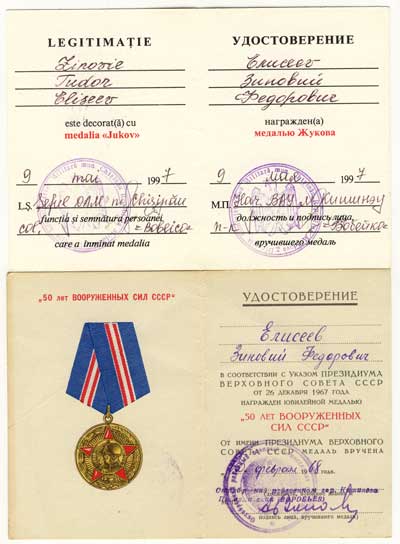 LEGITIMAȚIE
Zinovie
Tudor
Eliseev
este decorat(ă) cu
medalia «Jukov»
9 mai 1997
L.Ș. Șefie OAM m. Chișinău
funcția și semnătura persoanei,
col. =Bobeico=
care a înmînat medalia
УДОСТОВЕРЕНИЕ
Елисеев
Зиновий
Федорович
награжден(а)
медалью Жукова
9 мая 1997
М.П. Нач. ВАУ м. Кишинэу
должность и подпись лица,
п-к =Бобейко=
вручившего медаль
„50 лет ВООРУЖЕННЫХ СИЛ СССР"
УДОСТОВЕРЕНИЕ
Елисеев
Зиновий Федорович
В СООТВЕТСТВИИ С УКАЗОМ ПРЕЗИДИУМА
ВЕРХОВНОГО СОВЕТА СССР
ОТ 26 ДЕКАБРЯ 1967 ГОДА
НАГРАЖДЕН ЮБИЛЕЙНОЙ МЕДАЛЬЮ
"50 ЛЕТ ВООРУЖЕННЫХ
СИЛ СССР"
ОТ ИМЕНИ ПРЕЗИДИУМА ВЕРХОВНОГО
СОВЕТА СССР МЕДАЛЬ ВРУЧЕНА
февраля 1968 года
гор. Кишинева
(ВОРОБЬЕВ)
подпись лица, вручившего медаль)